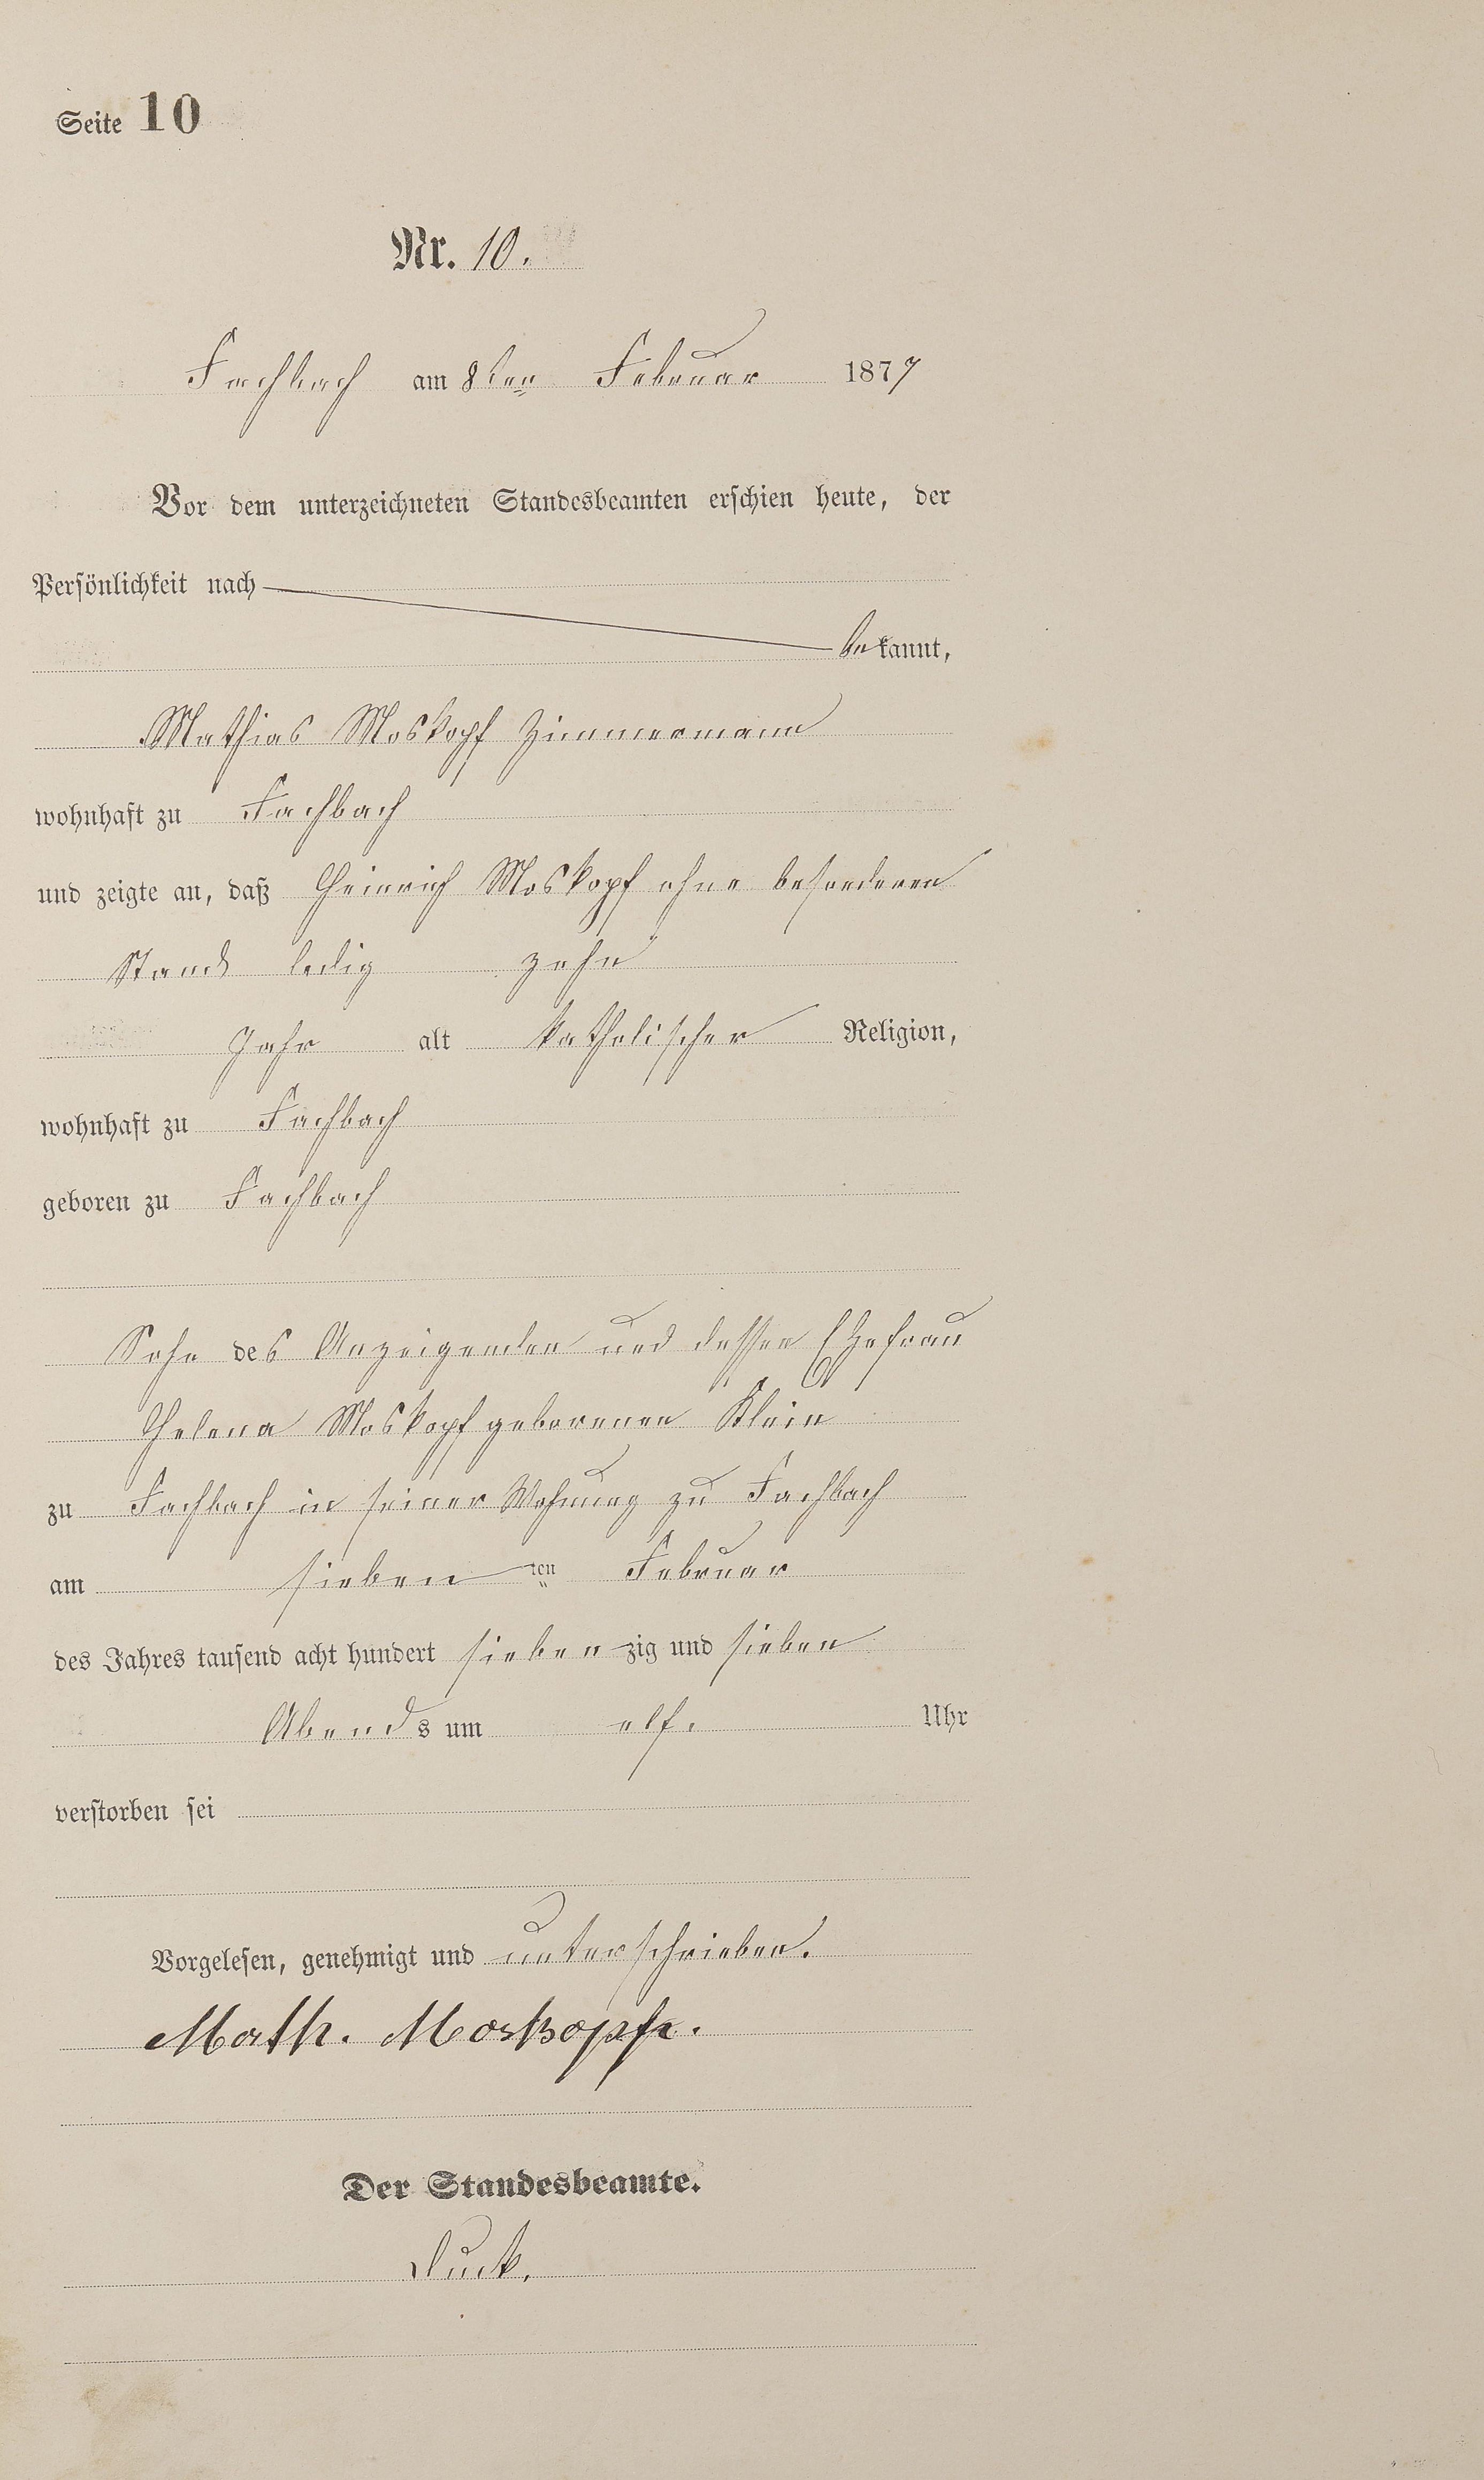 Seite 10
Nr. 10.
Fachbach am 8ten Februar 1877
Vor dem unterzeichneten Standesbeamten erschien heute, der
Persönlichkeit nach
bekannt,
Mathias Moskopf Zimmermann
wohnhaft zu Fachbach
und zeigte an, daß Heinrich Moskopf ohne besonderen
Stand ledig zehn
Jahr alt katholischer Religion,
wohnhaft zu Fachbach
geboren zu Fachbach
Sohn des Anzeigenden und dessen Ehefrau
Helena Moskopf geborenen Klein
zu Fachbach in seiner Wohnung zu Fachbach
am sieben ten Februar
des Jahres tausend acht hundert siebenzig und sieben
Abends um elf. Uhr
verstorben sei
Vorgelesen, genehmigt und unterschrieben.
Math. Moskopf.
Der Standesbeamte.
Duck.